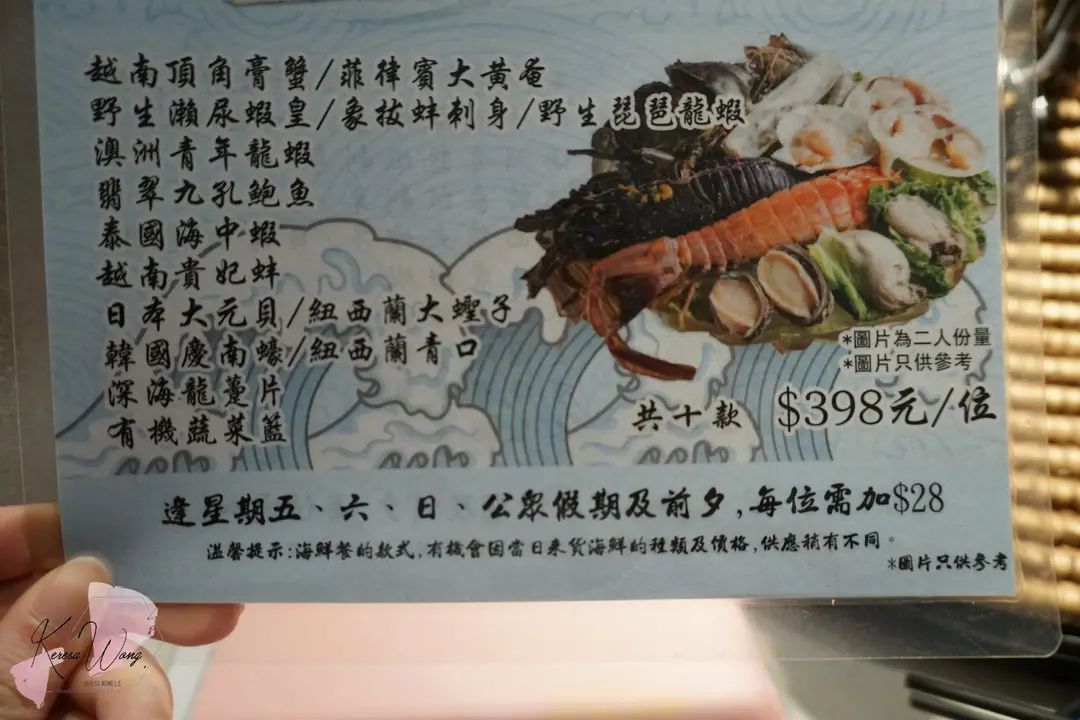 越南頂角膏蟹/菲律賓大黃奄
野生瀨尿蝦皇/象拔蚌刺身/野生琵琶龍蝦
澳洲青年龍蝦
翡翠九孔鮑魚
泰國海中蝦
越南貴妃蚌
日本大元貝/紐西蘭大蟶子
韓國慶南蠔/紐西蘭青口
深海龍躉片
有機蔬菜籃
*圖片為二人份量
*圖片只供參考
共十款 $398元/位
逢星期五、六、日、公眾假期及前夕,每位需加$28
溫馨提示:海鮮餐的款式,有機會因當日來貨海鮮的種類及價格,供應稍有不同。
*圖片只供參考
Keresa Wong.